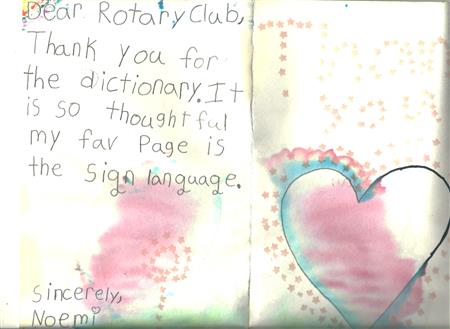 Dear Rotary Club,
Thank you for
the dictionary. It
is so thoughtful
my fav Page is
the sign language.
Sincerely,
Noemi